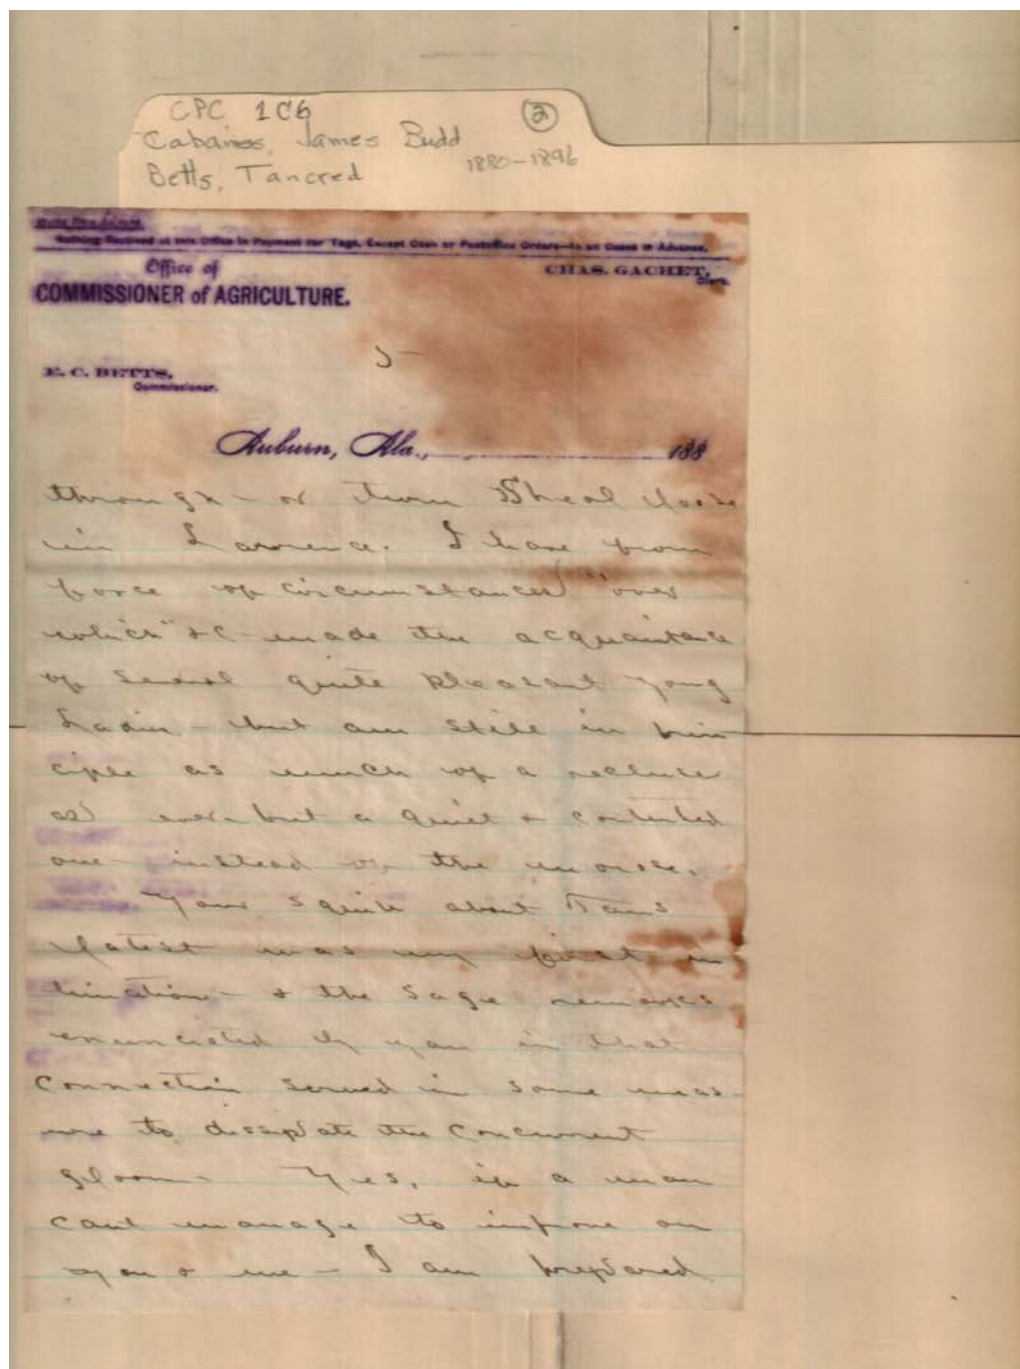 CPC 1C6
2
Cabaniss, James Budd
1880-1896
Betts, Tancred
Nothing Received at this Office in Payment for Tags, Except Cash or Postoffice Orders—in all Cases in Advance.
Office of
CHAS. GACHET,
Clerk.
COMMISSIONER of AGRICULTURE.
5
E. C. BETTS,
Commissioner.
Auburn, Ala., 188
through - or turn Sheol loose
in . I have from
force of circumstances "over
which" &c - made the acquaintance
of several quite pleasant young
Ladies - but am still in prin
ciple as much of a recluse
as ever - but a quiet & contented
one instead of the morose.
Your squib about Tom's
latest was my first in
timation - & the sage remarks
enunciated by you in that
connection served in some meas-
ure to dissipate the concurrent
gloom - Yes, if a man
cant manage to improve on
you & me - I am prepared